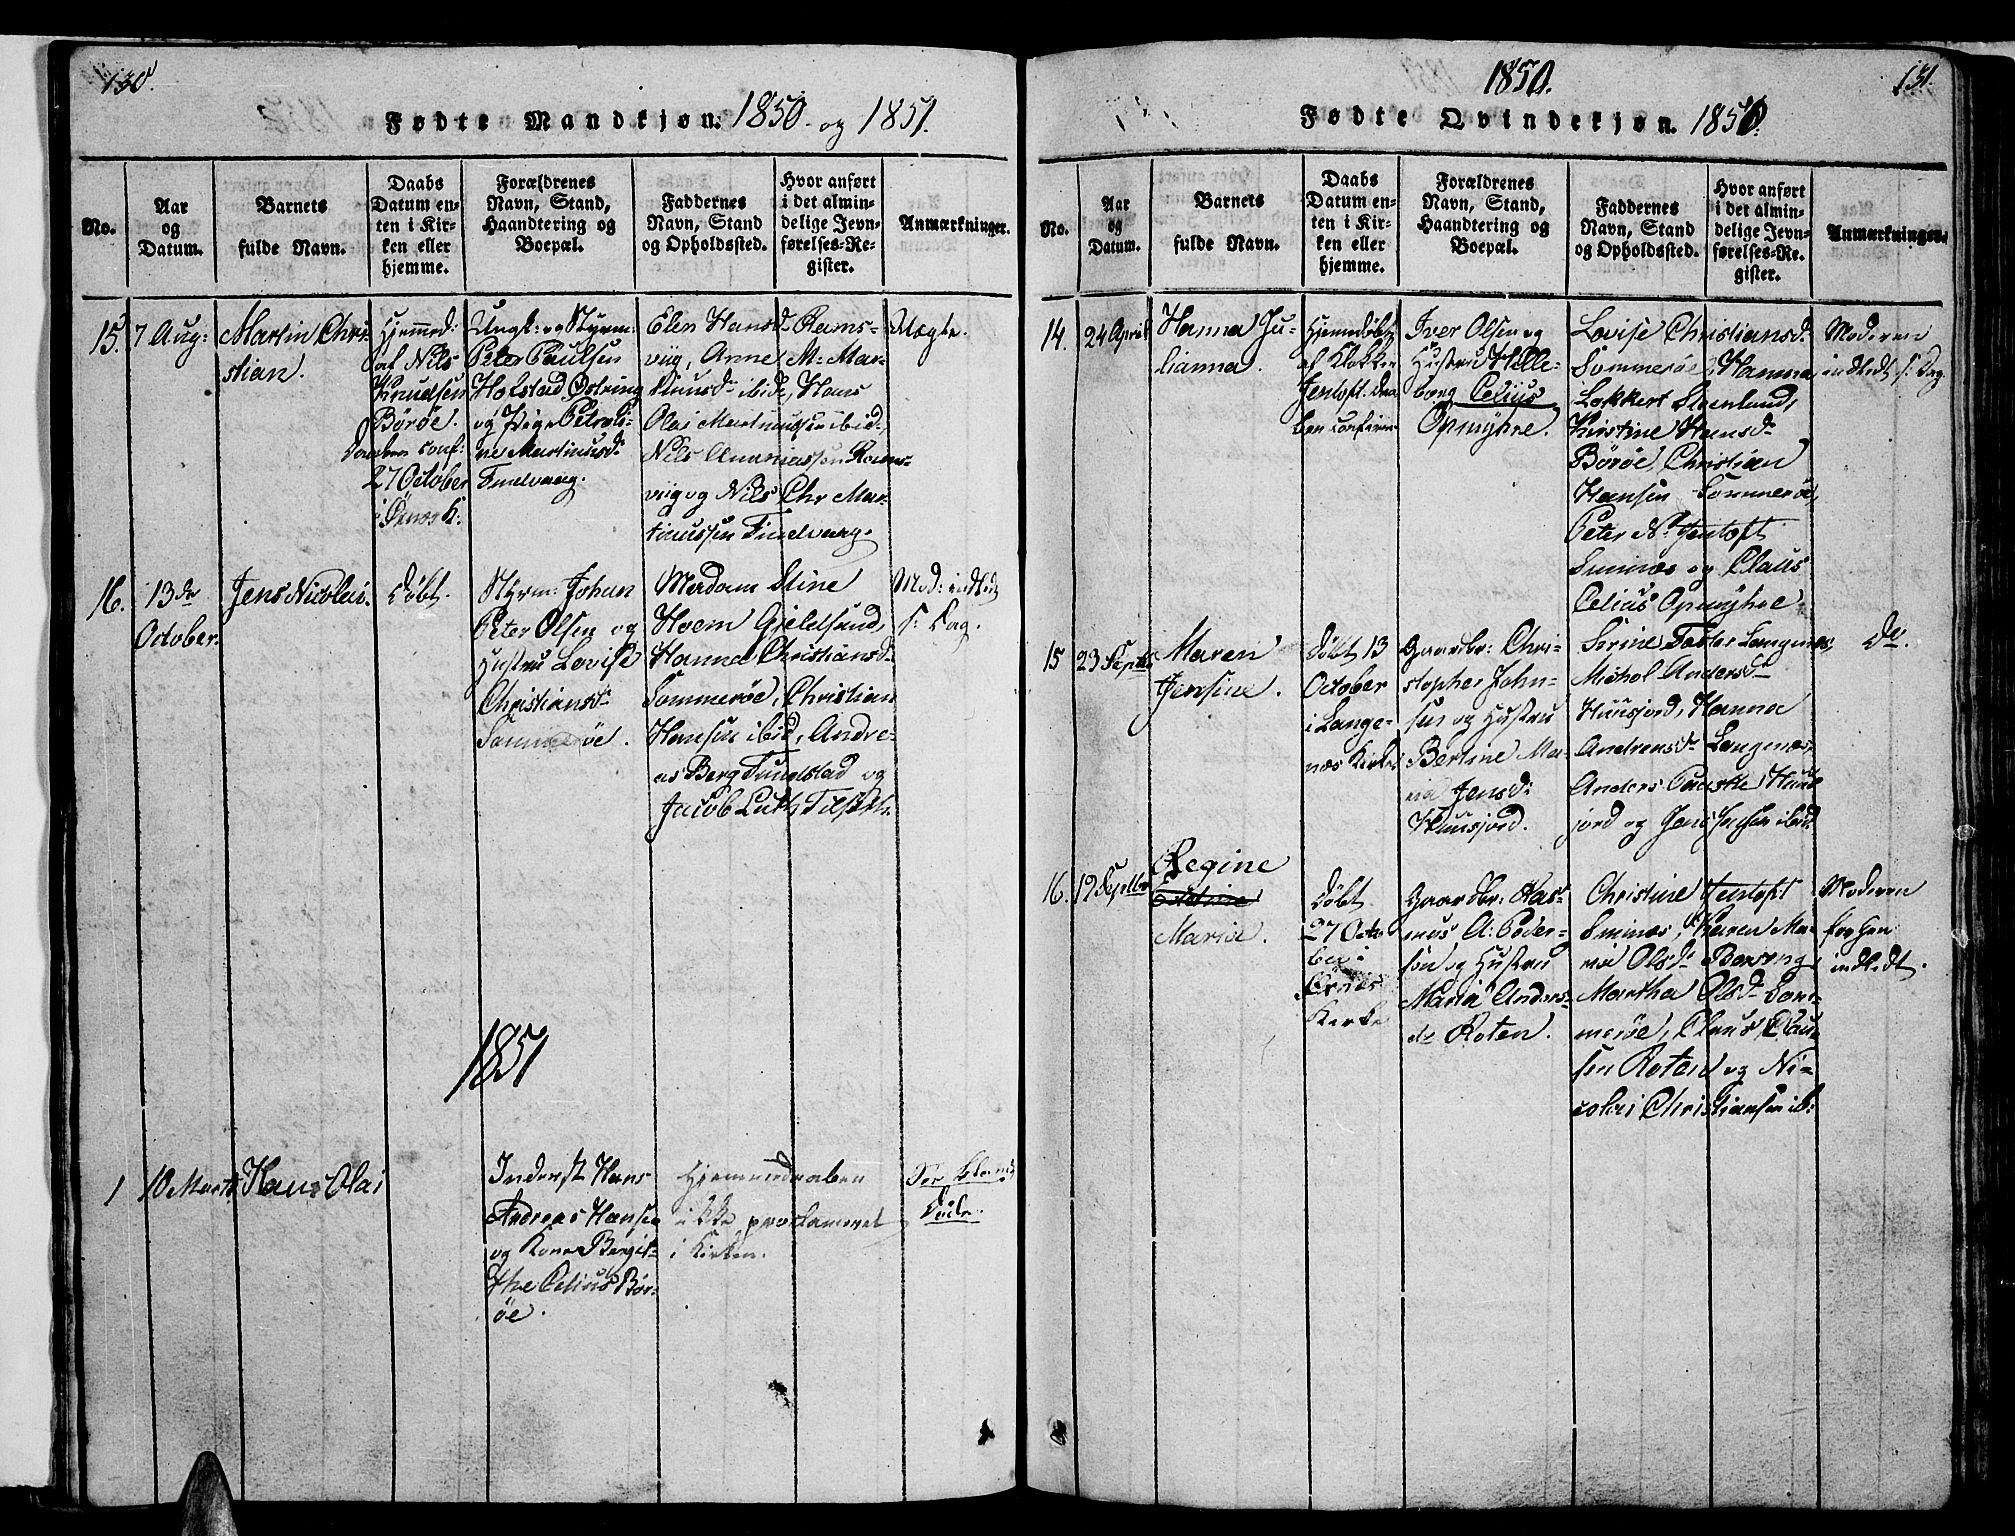 130.
Fødte Mandkjøn. 1850. og 1851.
No.
Aar
og
Datum.
Barnets
fulde Navn.
Daabs
Datum en-
ten i Kir-
ken eller
hjemme.
Forældrenes
Navn, Stand,
Haandtering og
Boepæl.
Faddernes
Navn, Stand
og Opholdssted.
Hvor anført
i det almin-
delige Jevn-
førelses-Re-
gister.
Anmærkninger.
15. 7 Aug:
Martin Chri-
stian.
Hjemmed:
af Nils
Knudsen
Børøe.
Daaben conf:
27 October
i Øxnes K:
Ungk: og Styrm:
Peter Paulsen
Hofstad
og Pige Petroli-
ne Martinusd:
Tindvaag.
Elen Hansd. Rams-
viig, Anne M. Mar-
tinusd. ibid, Hans
Olai Martinussen ibid
Nils Ananiassen Rams-
viig og Nils Chr Mar-
tinussen Tindvaag.
Uægte.
16. 13de
October.
Jens Nicolai.
Døbt.
Styrm: Johan
Peter Olsen og
Hustru Lovise
Christiansd.
Sommerøe.
Madam Stine
Hoem Gjeldsund,
Hanna Christiansd.
Sommerøe, Christian
Hansen ibid, Andre-
as Berg Tunstad og
Jacob Luth
Mod: indled
s: Dag.
1851
1 10 Marts Hans Olai
Inderst Hans
Andreas Hansen
og Kone Bergit-
the Celius Bør-
øe.
Hjemmedaaben
ikke proclameret
i Kirken.
Døde.
1850.
131.
Fødte Qvindekjøn. 1850.
No.
Aar
og
Datum.
Barnets
fulde Navn.
Daabs
Datum en-
ten i Kir-
ken eller
hjemme.
Forældrenes
Navn, Stand,
Haandtering og
Boepæl.
Faddernes
Navn, Stand
og Opholdssted.
Hvor anført
i det almin-
delige Jevn-
førelses-Re-
gister.
Anmærkninger.
14. 24 April
Hanna Ju-
lianna.
Hjemdøbt
af Klokker
Jentoft. Daa-
ben confirm.
Iver Olsen og
Hustru Hille-
borg Celius
Opmyhre.
Lovise Christiansd.
Sommerøe, Hanna
Lokkert Steenland,
Kirstine Hansd.
Børøe, Christian
Hansen Sommerøe,
Peter N. Jentoft
Smines og Claus
Celius Opmyhre
Moderen
indledt s: Dag
15 23 Septbr
Maren
Jensine.
Døbt 13
October
i Lange-
næs Kirke
Gaardbr: Chri-
stopher John-
sen og Hustru
Bertine Ma-
ria Jensd:
Huusjord.
Sorine Falster Langenæs,
Michol Andersd.
Huusjord, Hanna
Andreasd. Langenæs
Anders Huus-
jord og Jens Hansen ibid
Do.
16. 19 Septbr
Regine
Maria.
Døbt
27 Octo-
ber i
Øxnes
Kirke
Gaardbr: Ras-
mus A: Peder-
sen og Hustru
Maria Anders-
d. Roten.
Christine Jentoft
Smines, Karen Ma-
ria Olsd.
Martha Olsd. Som-
merøe, Claus Clau-
sen Roten og Ni-
colai Christiansen ib:
Moderen
forhen
indledt.